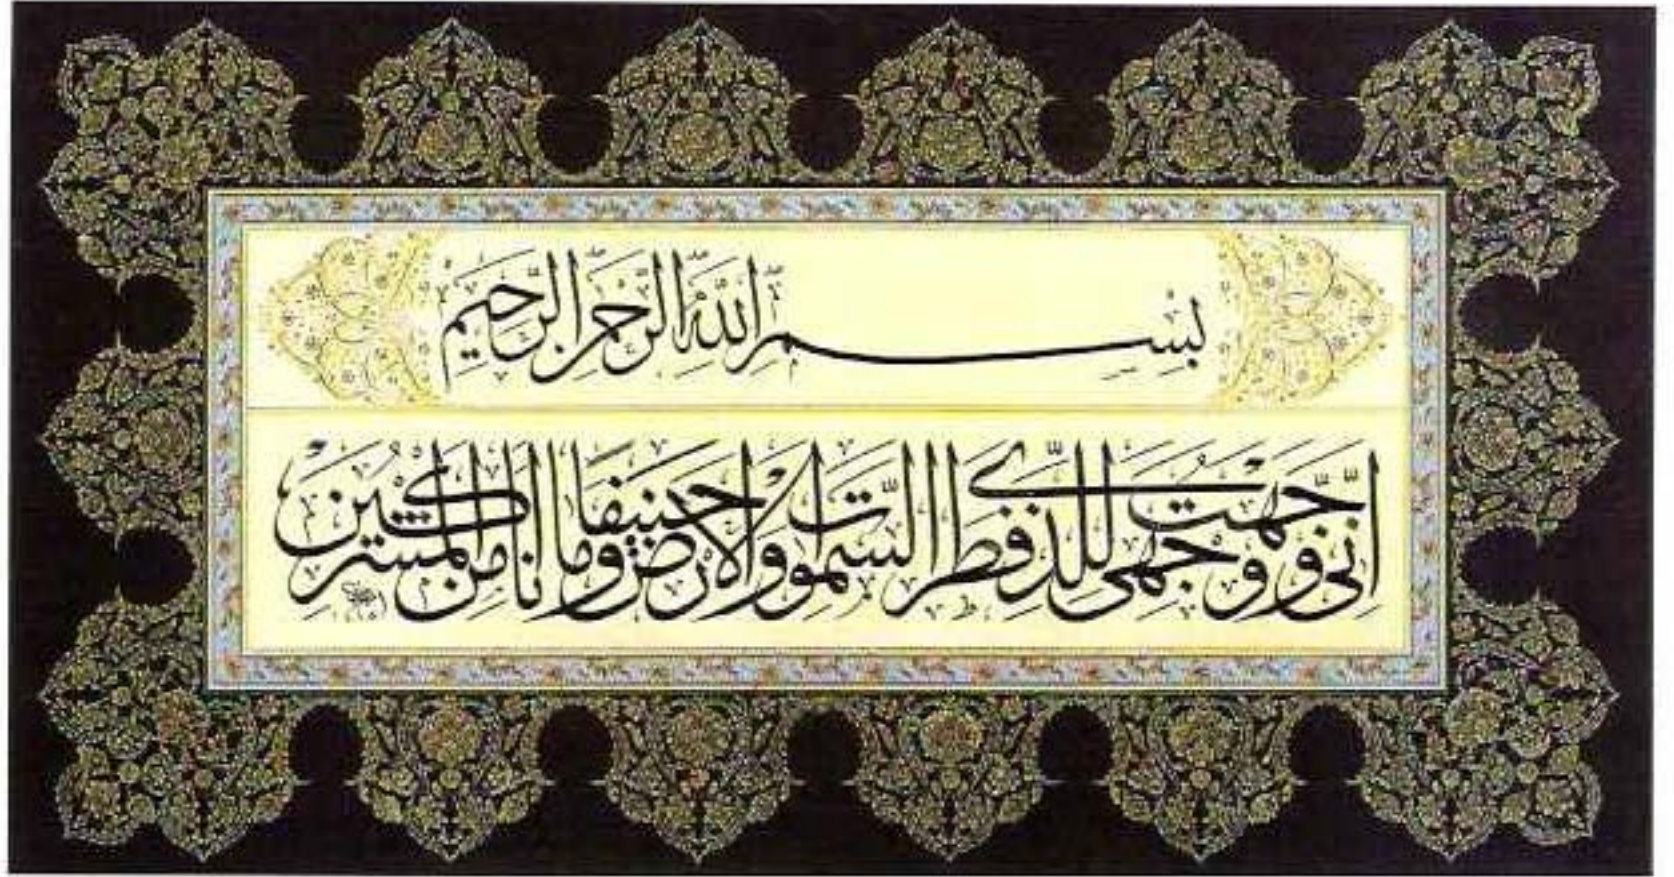 بِسْمِ اللّٰهِ الرَّحْمٰنِ الرَّحِيمِ
اِنِّى وَجَّهْتُ وَجْهِىَ لِلَّذِى فَطَرَ السَّمٰوَاتِ وَالْاَرْضَ حَنِيفًا وَمَا اَنَا مِنَ الْمُشْرِكِينَ